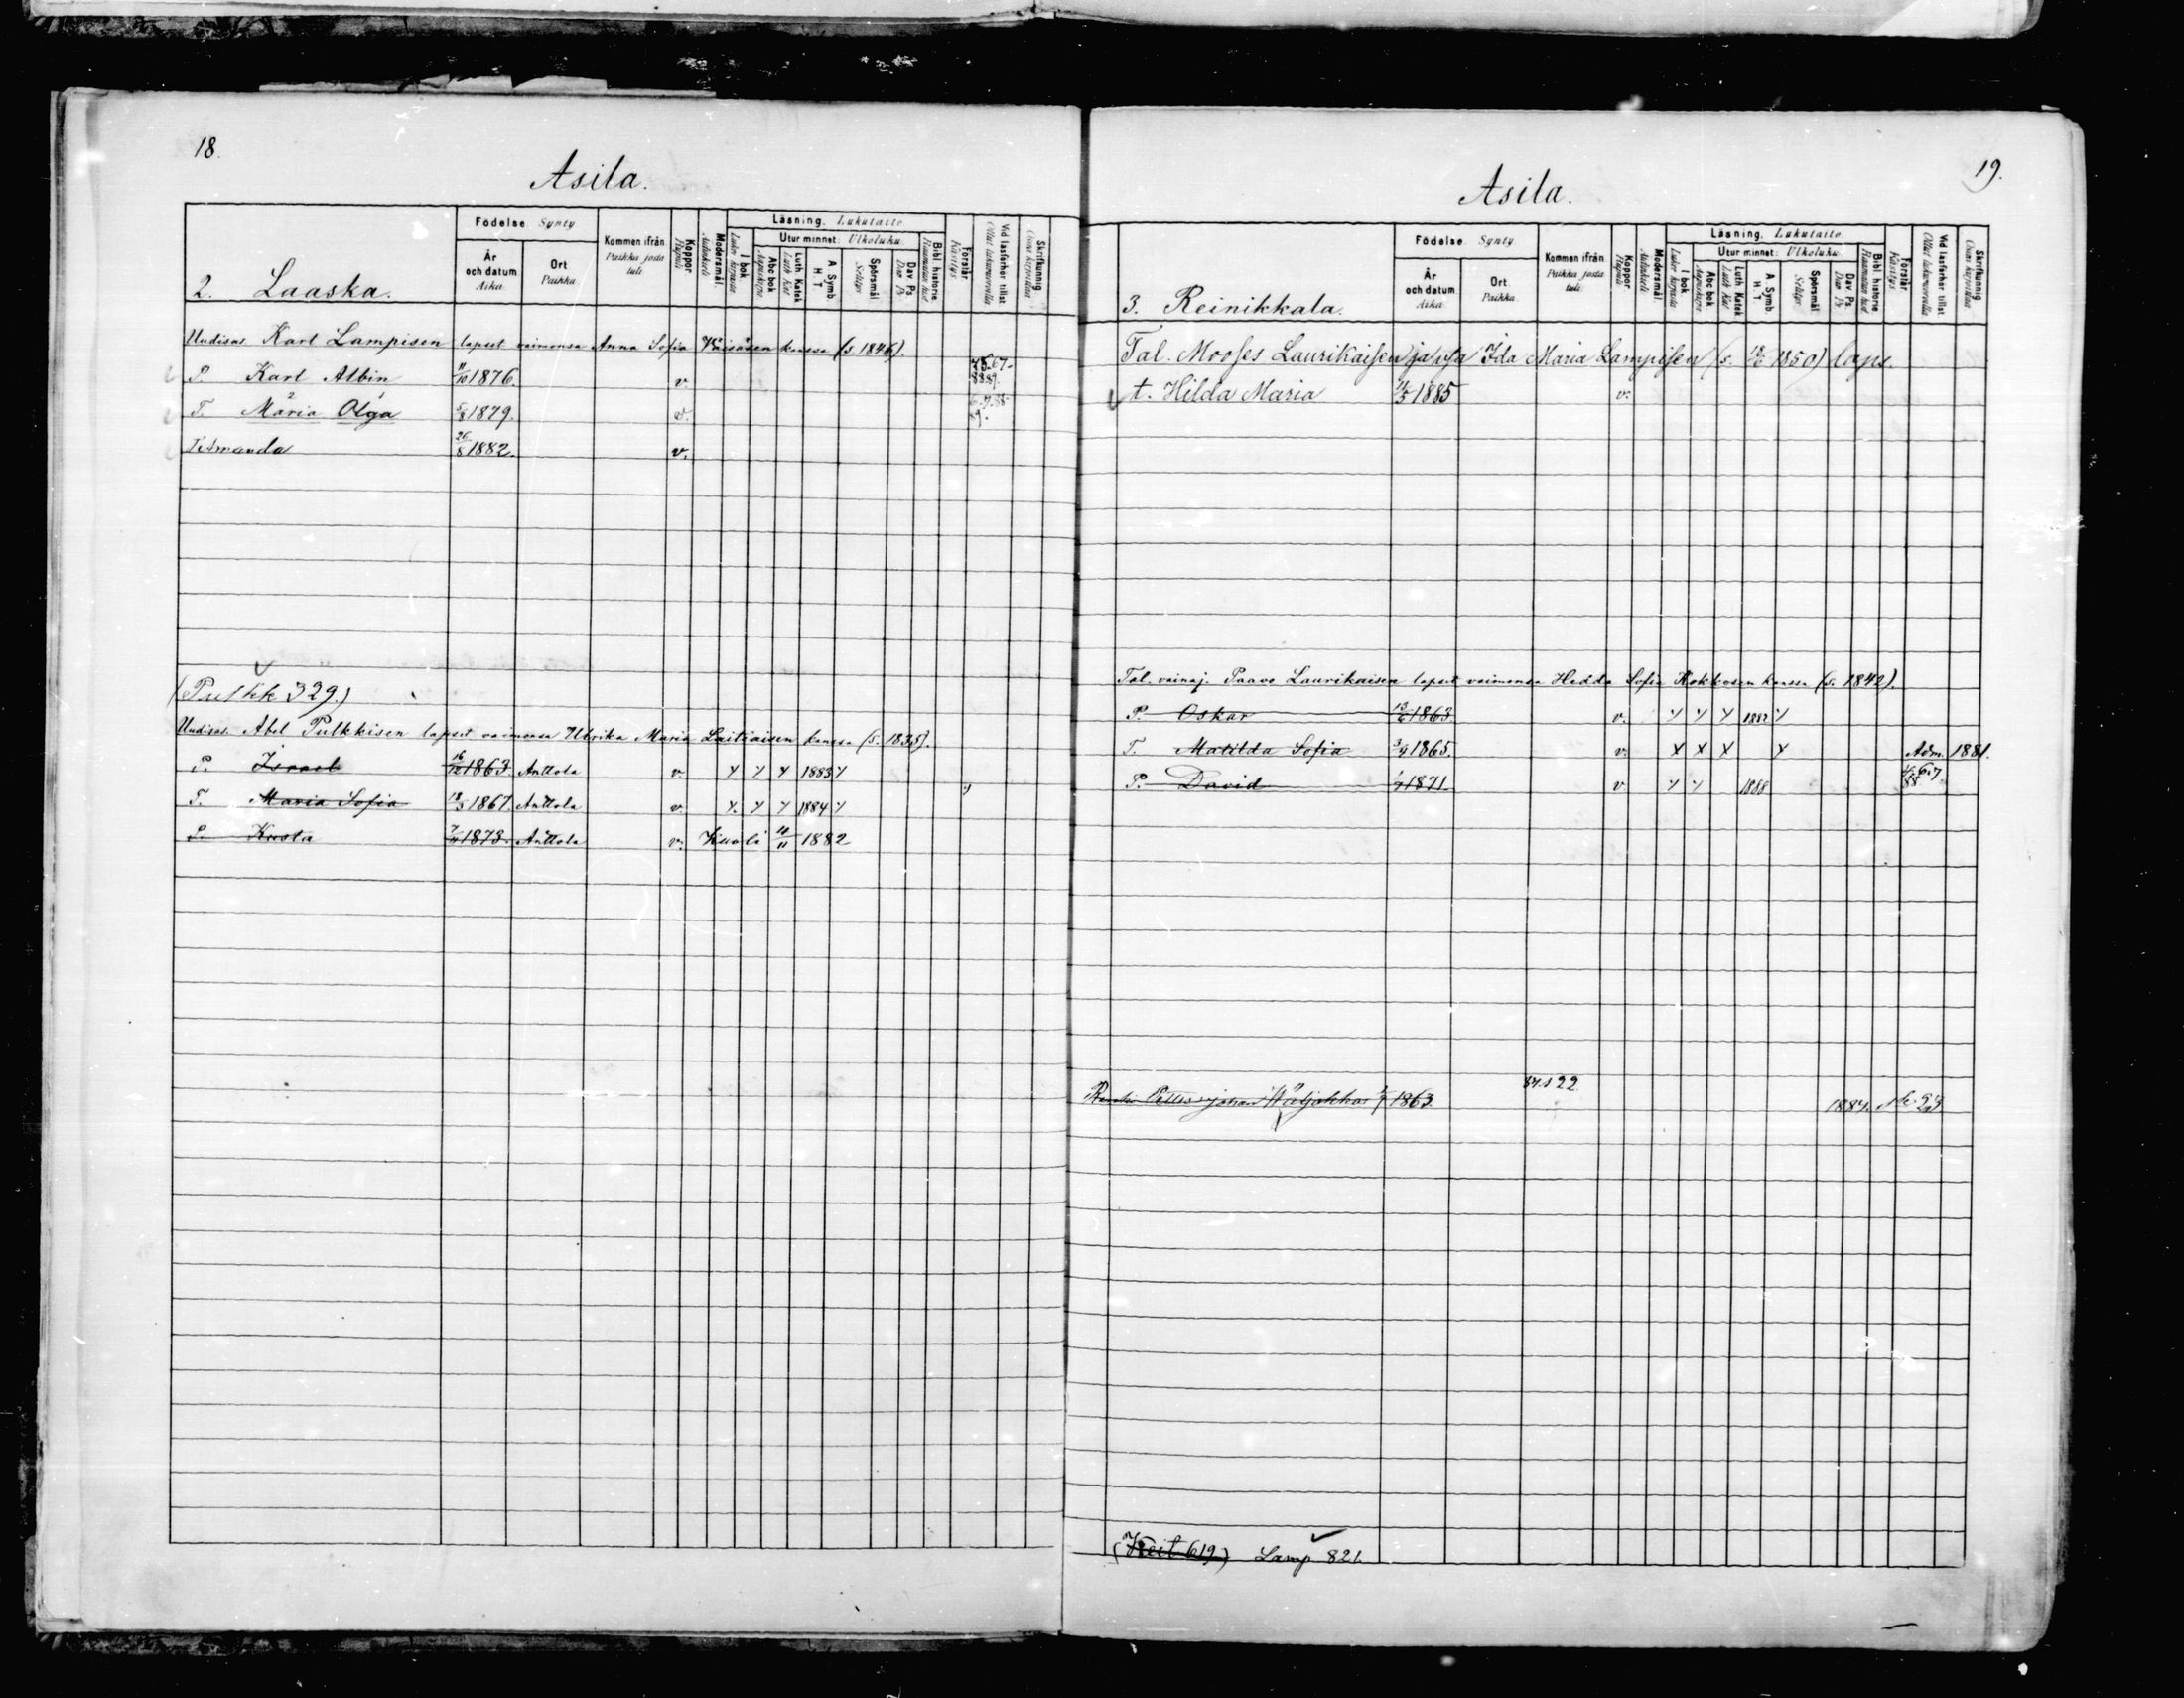 18.
Asila.
2. Laaska.
Födelse Synty
År och datum Aika
Ort Paikka
Kommen ifrån Paikka josta tuli
Koppor Rupuli
Modersmål Äidinkieli
Läsning. Lukutaito
I bok Luku kirjasta
Utur minnet: Ulkoluku
Abc bok Aapiskirja
Luth Katek Luth Kat
A. Symb. H. T
Spörsmål Selitys
Dav. Ps Dav Ps
Bibl historie Raamatun hist
Förstår Käsitys
Vid läsförhör tillst Ollut lukuvuorolla
Skrifkunnig Osaa kirjoittaa
Uudisas. Karl Lampisen lapset vaimonsa Anna Sofia Väisäsen kanssa (s. 1846).
P. Karl Albin 11/10 1876. v. 88.89.
T. Maria Olga 5/8 1879. v. 89.
T. Amanda 26/8 1882. v.
(Pulkk 329)
Uudisas. Abel Pulkkisen lapset vaimonsa Ulrika Maria Laitiaisen kanssa (s. 1835).
P. Israel 16/12 1863. Anttola v. 1883
T. Maria Sofia 18/5 1867. Anttola v. 1884
P. Kusta 1873. Anttola v. Kuoli 11 1882
19.
Asila.
3. Reinikkala.
Födelse Synty
År och datum Aika
Ort. Paikka
Kommen ifrån Paikka josta tuli
Koppor Rupuli
Modersmål Äidinkieli
Läsning. Lukutaito
I bok Luku kirjasta
Utur minnet: Ulkoluku
Abc bok Aapiskirja
Luth Katek Luth Kat
A. Symb. H. T
Spörsmål Selitys
Dav. Ps Dav Ps
Bibl historie Raamatun hist
Förstår Käsitys
Vid läsförhör tillst Ollut lukuvuorolla
Skrifkunnig Osaa kirjoittaa
Tal. Mooses Laurikaisen ja vsa Ida Maria Lampisen (s. 1850) laps.
t. Hilda Maria 1885 v.
Tal. vainaj. Paavo Laurikaisen lapset vaimonsa Hedda Sofia Kokkosen kanssa (s. 1842).
P. Oskar 13/6 1863. v. 1882
T. Matilda Sofia 3/9 1865. v. x x x x Adm. 1881.
P. David 1871. v 1888 88
84. s 22
Petter Johan 1863. 1884.
(Heit 619) Lamp 821.